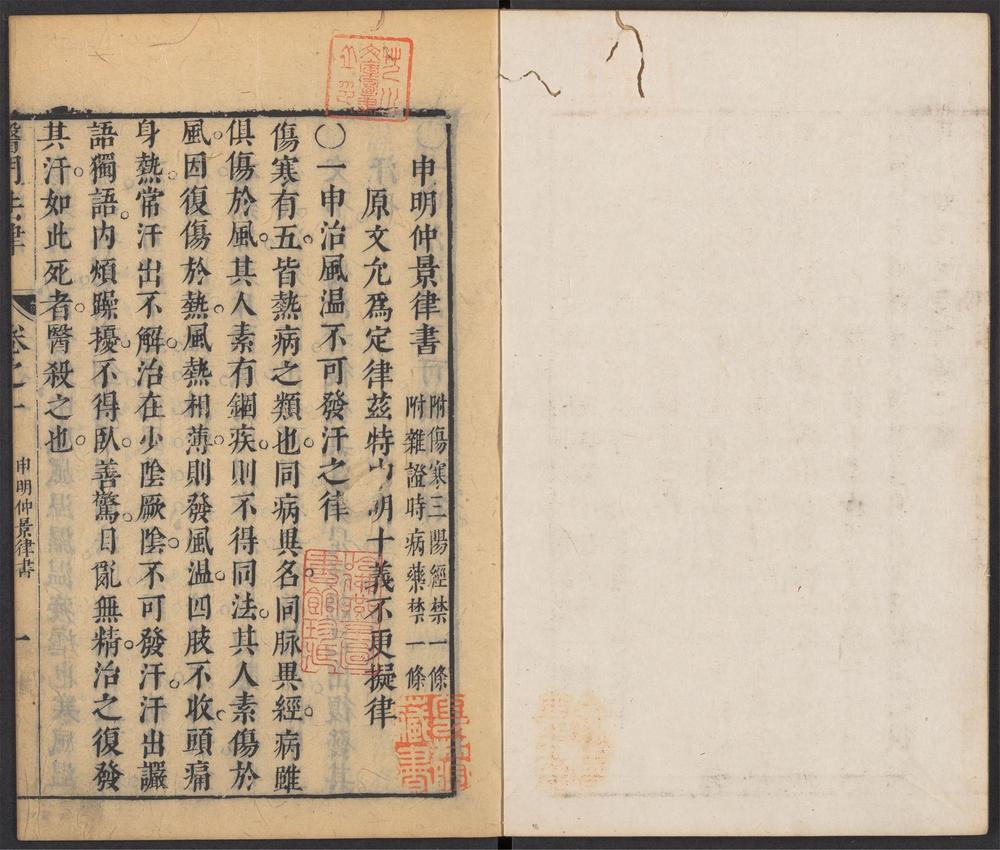 〇申明仲景律書 附傷寒三陽經禁一條
附雜證時病藥禁一條
原文允爲定律茲特申明十義不更擬律
〇一申治風温不可發汗之律
傷寒有五皆熱病之類也同病異名同脉異經病雖
俱傷於風其人素有錮疾則不得同法其人素傷於
風因復傷於熱風熱相薄則發風温四肢不收頭痛
身熱常汗出不解治在少陰厥陰不可發汗汗出讝
語獨語內煩躁擾不得臥善驚目亂無精治之復發
其汗如此死者醫殺之也
醫門法律 卷之一 申明仲景律書 一
藏書